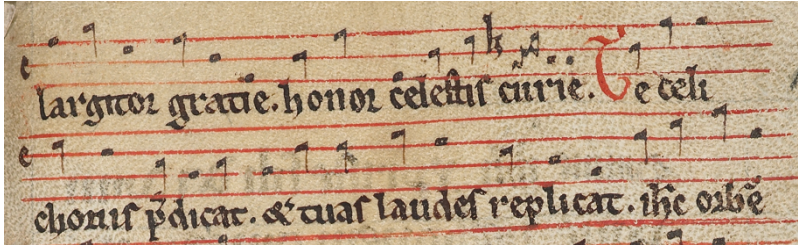 largitor gratie. honor celestis cur̄ie. Te celi
chorus p̄dicat. & tuas laudes replicat. ih̄c orbē